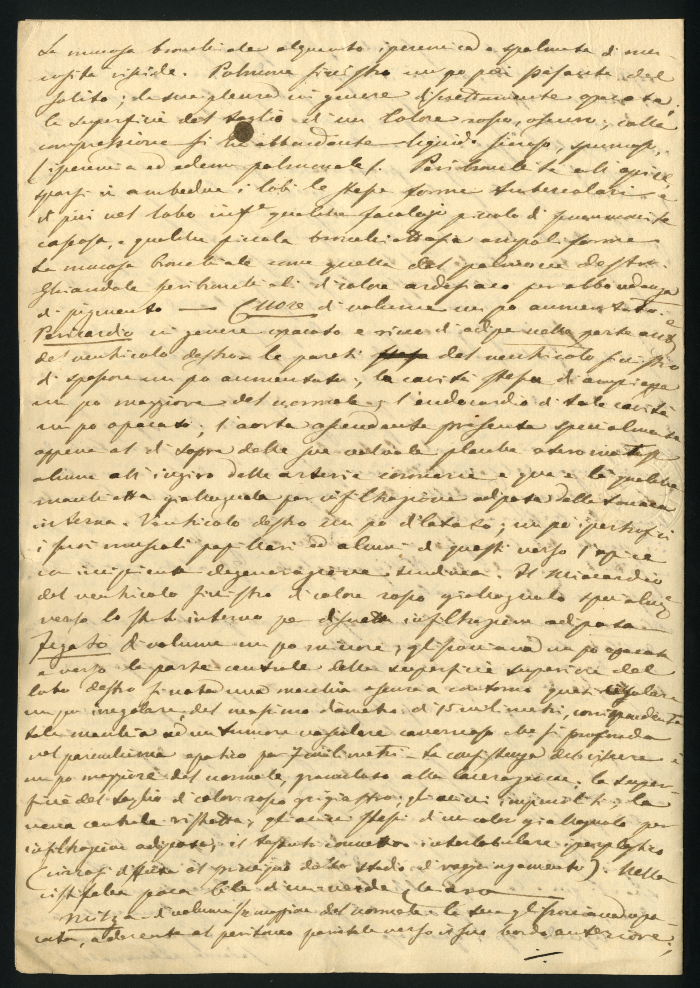 La mucosa bronchiale alquanto iperemica e spalmata di mu-
cosità viscide. Polmone sinistro un po' più pesante del
solito; la sua pleura in genere discretamente opacata,
la superficie del taglio d'un colore rosso, oscuro; colla
compressione si ha abbondante liquido sieroso, spumoso,
(iperemia ed edema polmonale). Peribronchite all'apice,
sparsi in ambedue i lobi le stesse forme tubercolari, e
di più nel lobo inf.e qualche focolajo piccolo di pneumonite
caseosa, e qualche piccola bronchiettasia ampolliforme
La mucosa bronchiale come quella del polmone destro.
Ghiandole peribronchiali di colore ardesiaco per abbondanza
di pigmento — Cuore di volume un po' aumentato.
Pericardio in genere opacato e ricco di adipe nella parte ant.e
del ventricolo destro. le pareti del ventricolo sinistro
di spessore un po' aumentato, la cavità stessa di ampiezza
un po' maggiore del normale; l'endocardio di tale cavità
un po' opacato; l'aorta ascendente presenta specialmente
appena al di sopra delle sue valvole placche ateromatose
alcune all'ingiro delle arterie coronarie e qua e là qualche
macchietta giallognola per infiltrazione adiposa della tonaca
interna. Ventricolo destro un po' dilatato; un po' ipertrofici
i suoi muscoli papillari ed alcuni di questi verso l'apice
in incipiente degenerazione tendinea. Il miocardio
del ventricolo sinistro di colore rosso giallognolo specialm.e
verso lo strato interno per discreta infiltrazione adiposa —
Fegato di volume un po' minore; glissoniana un po' opacata
e verso la parte centrale della superficie superiore del
lobo destro si nota una macchia oscura a contorno quasi regolare
un po' irregolare, del massimo diametro di 15 millimetri, corrispondente
tale macchia ad un tumore vascolare cavernoso che si profonda
nel parenchima epatico per 7 millimetri — La consistenza del viscere è
un po' maggiore del normale, granuloso alla lacerazione; la super-
ficie del taglio di color rosso grigiastro; gli acini impiccoliti; la
vena centrale ristretta; gli acini stessi di un color giallognolo per
infiltrazione adiposa; il tessuto connettivo interlobulare iperplastico
(cirrosi diffusa al principio dello stadio di raggrinzamento). Nella
cistifellea poca bile di un verde chiaro —
Milza di volume 1/2 maggiore del normale. la sua glissoniana opa-
cata, aderente al peritoneo parietale verso il suo bordo anteriore;